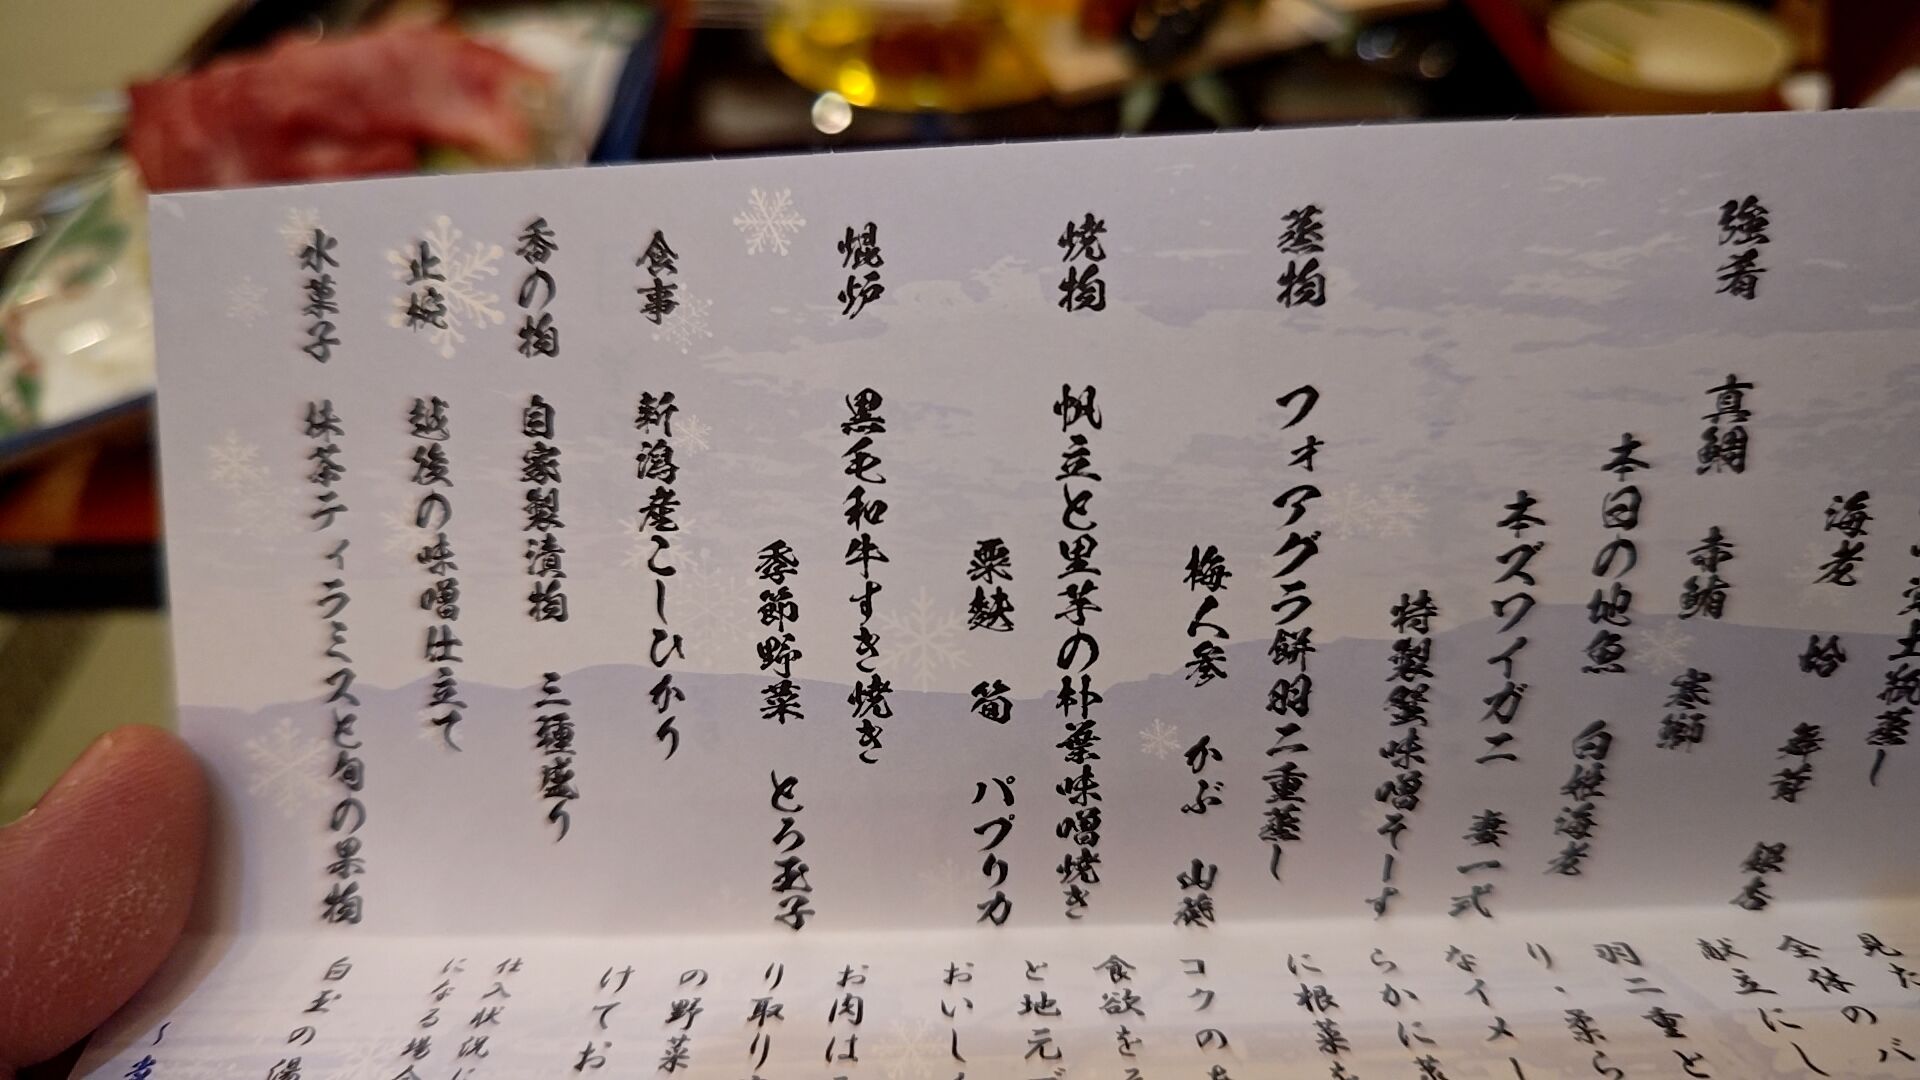 土瓶蒸し
海老 蛤 舞茸 銀杏
強肴 真鯛 赤鮪 寒鰤
本日の地魚 白姫海老
本ズワイガニ 妻一式
特製蟹味噌そーす
蒸物 フォアグラ餅羽二重蒸し
梅人参 かぶ 山葵
焼物 帆立と里芋の朴葉味噌焼き
粟麩 筍 パプリカ
焜炉 黒毛和牛すき焼き
季節野菜 とろ玉子
食事 新潟産こしひかり
香の物 自家製漬物 三種盛り
止椀 越後の味噌仕立て
水菓子 抹茶ティラミスと旬の果物
見た
全体のバ
献立にし
羽二重と
り、柔ら
なイメー
らかに蒸
に根菜を
コクのあ
食欲をそ
と地元
おいし
お肉は
り取り
の野菜
けてお
仕入状況に
になる場合
白玉の湯